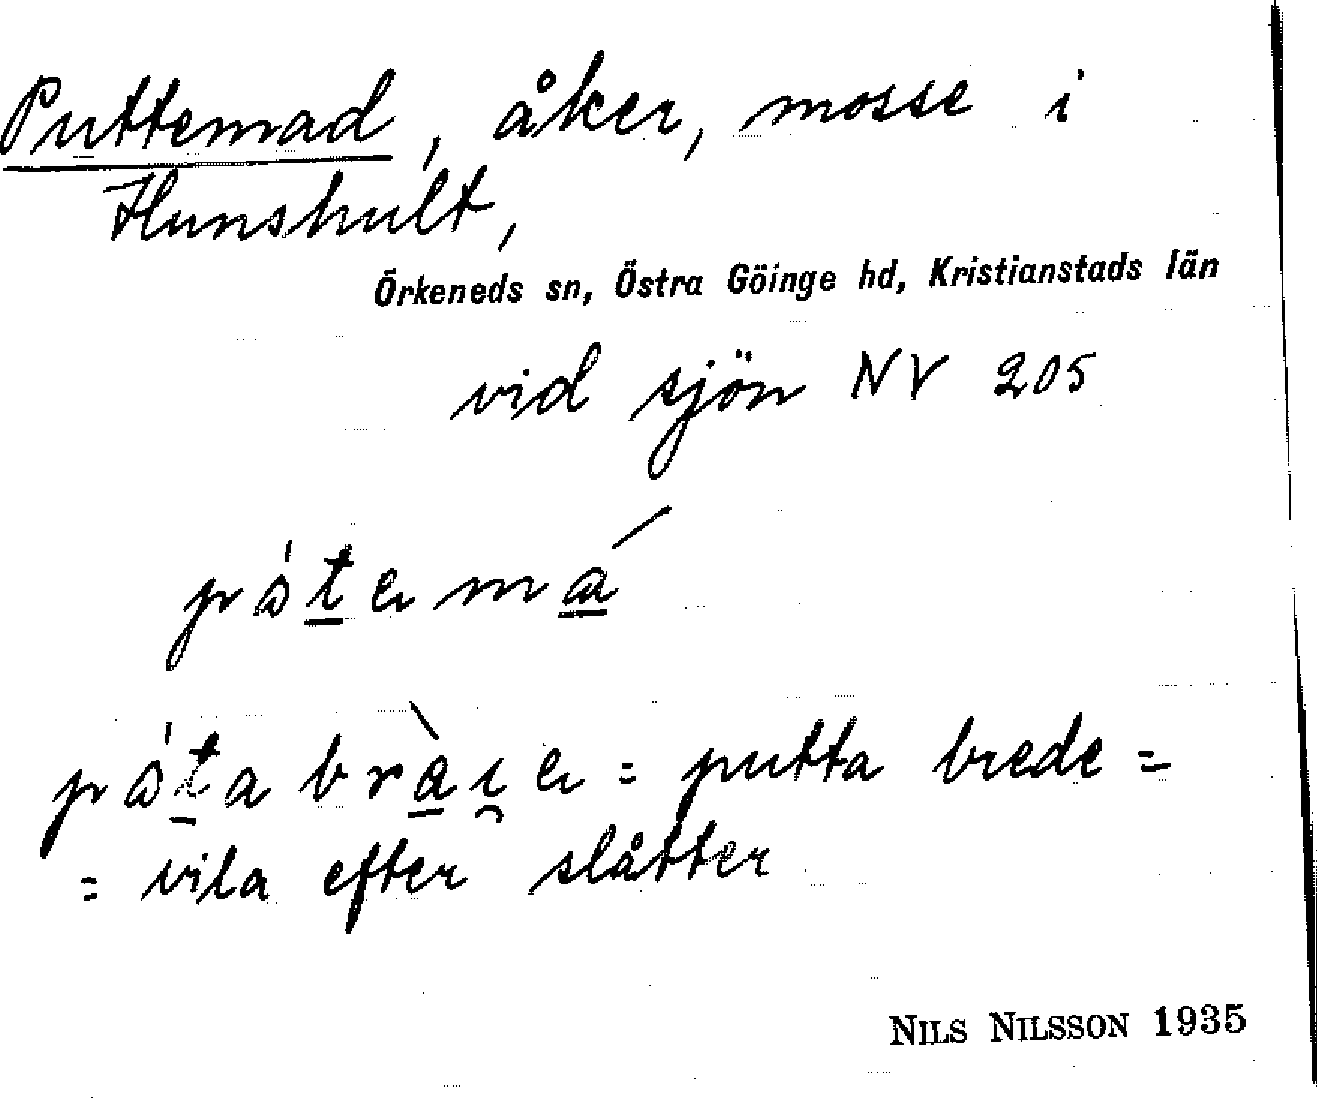 Puttemad, åker, mosse i
Hunshult,
Örkeneds sn, Östra Göinge hd, Kristianstads län
vid sjön NV 205
putta brede =
= vila efter slåtter
NILS NILSSON 1935